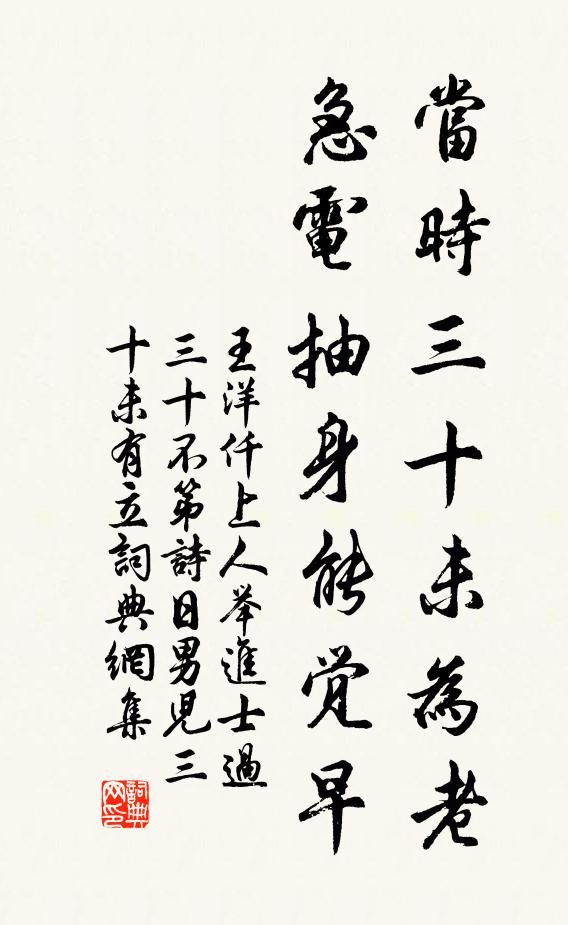 當時三十未為老
急電抽身能覚早
王洋仟上人举進士過
三十不第詩日男児三
十未有立詞典網集
詞典网印